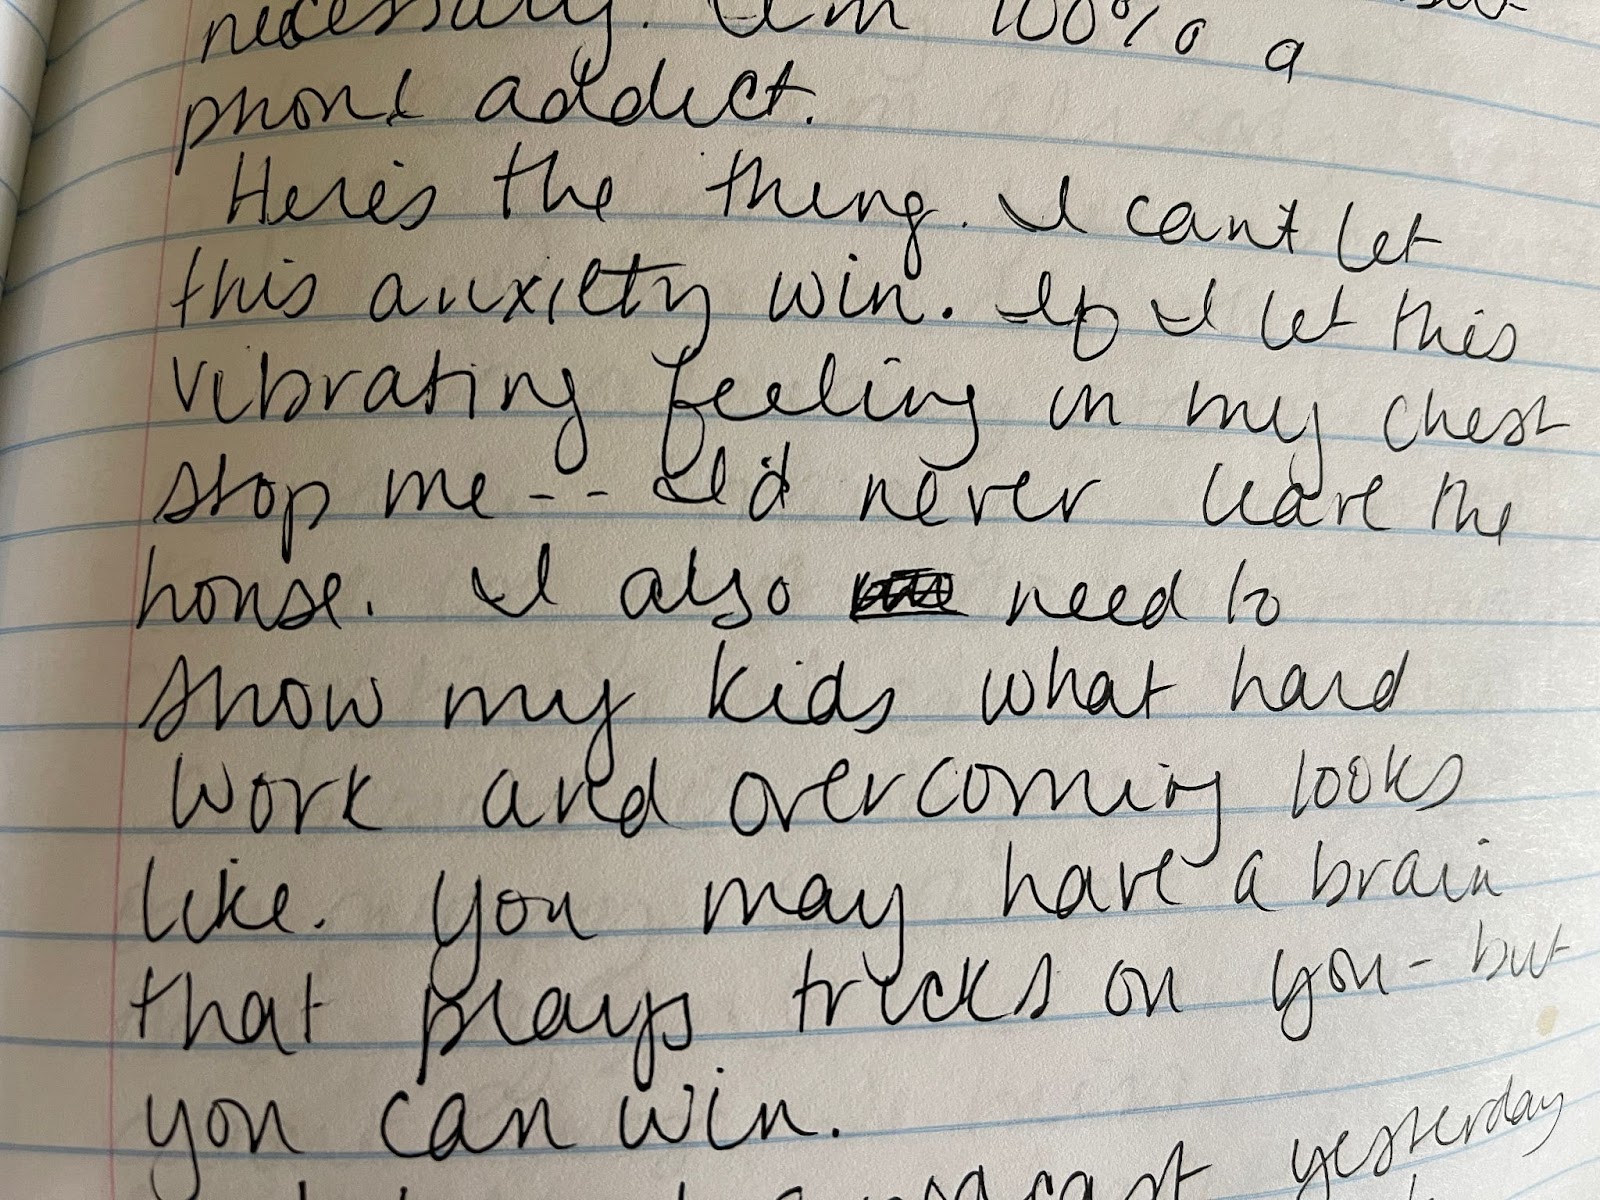 necessary. I'm 100% a
phone addict.
Here's the thing. I can't let
this anxiety win. If I let this
vibrating feeling in my chest
stop me -- I'd never leave the
house. I also need to
show my kids what hard
work and overcoming looks
like. You may have a brain
that plays tricks on you - but
you can win.
yesterday